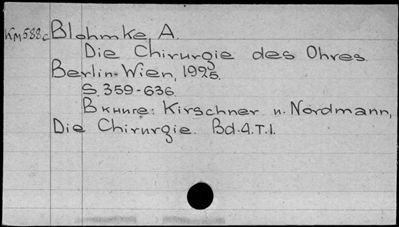 WM588c Blohmke, A.
Die Chirurgie des Ohres.
Berlin-Wien, 1925.
S. 359-636.
В книге: Kirschner u. Nordmann,
Die Chirurgie. Bd.4.T.1.